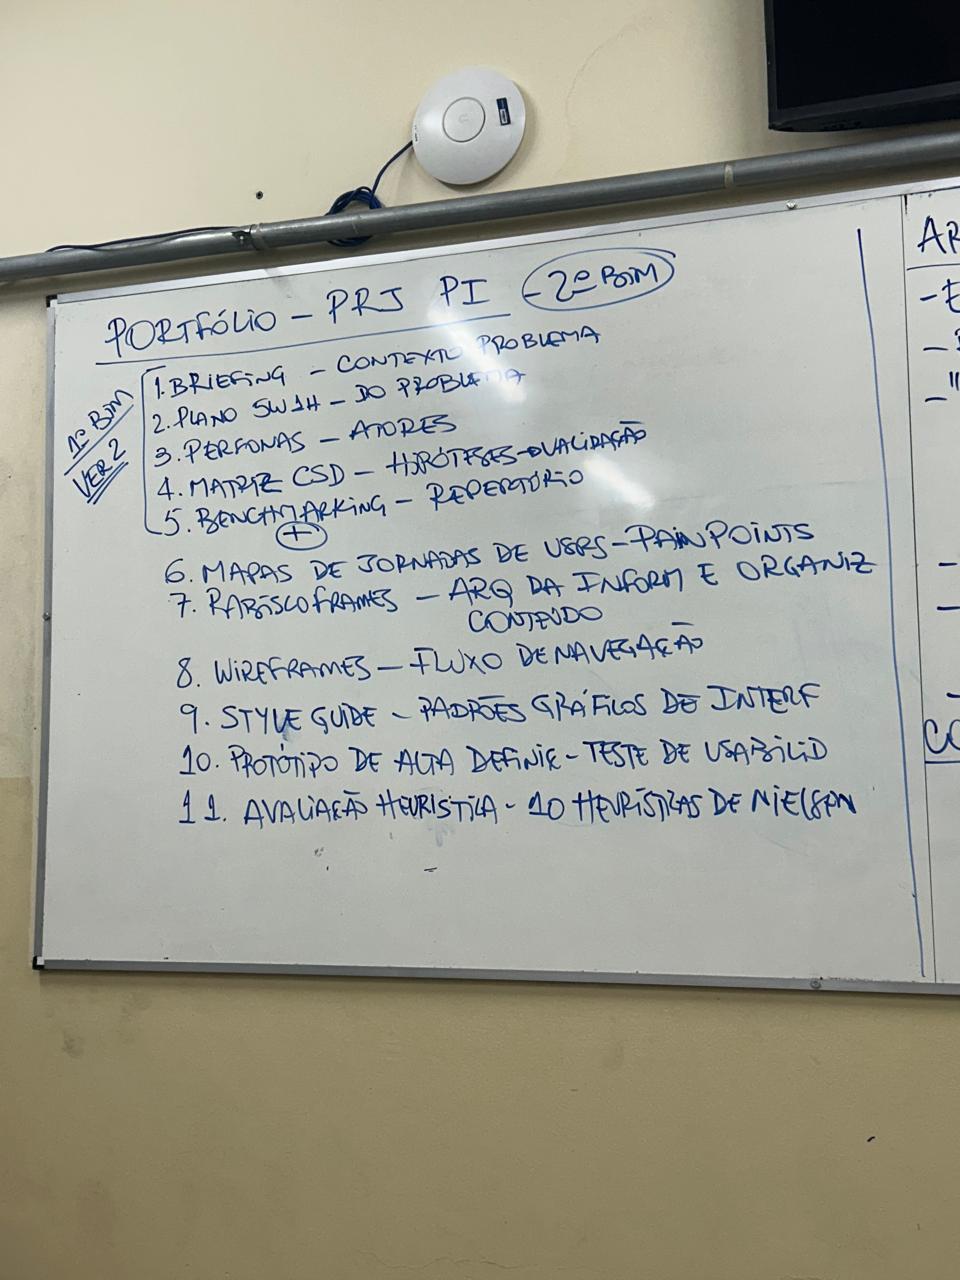 PORTFÓLIO - PRJ PI - 2º BIM
1º BIM
VER 2
1. BRIEFING - CONTEXTO PROBLEMA
2. PLANO 5W1H - DO PROBLEMA
3. PERSONAS - ATORES
4. MATRIZ CSD - HIPÓTESES → VALIDAÇÃO
5. BENCHMARKING - REPERTÓRIO
+
6. MAPAS DE JORNADAS DE USERS - PAIN POINTS
7. RABISCOFRAMES - ARQ DA INFORM E ORGANIZ
CONTEÚDO
8. WIREFRAMES - FLUXO DE NAVEGAÇÃO
9. STYLE GUIDE - PADRÕES GRÁFICOS DE INTERF
10. PROTÓTIPO DE ALTA DEFINIÇ - TESTE DE USABILID
11. AVALIAÇÃO HEURISTICA - 10 HEURÍSTICAS DE NIELSEN